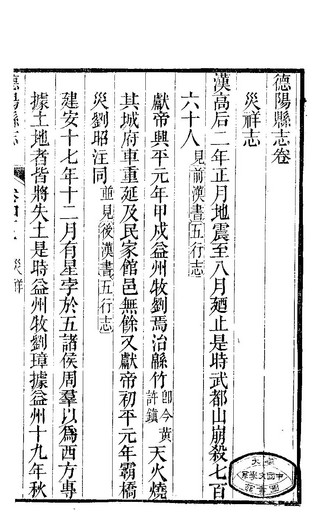 德陽縣志卷
災祥志
漢高后二年正月地震至八月廼止是時武都山崩殺七百
六十人見前漢書五行志
獻帝興平元年甲戌益州牧劉焉治緜竹卽今黃許鎮天火燒
其城府車重延及民家館邑無餘又獻帝初平元年霸橋
災劉昭注同並見後漢書五行志
建安十七年十二月有星孛於五諸侯周羣以爲西方專
據土地者皆將失土是時益州牧劉璋據益州十九年秋
德陽縣志
災祥